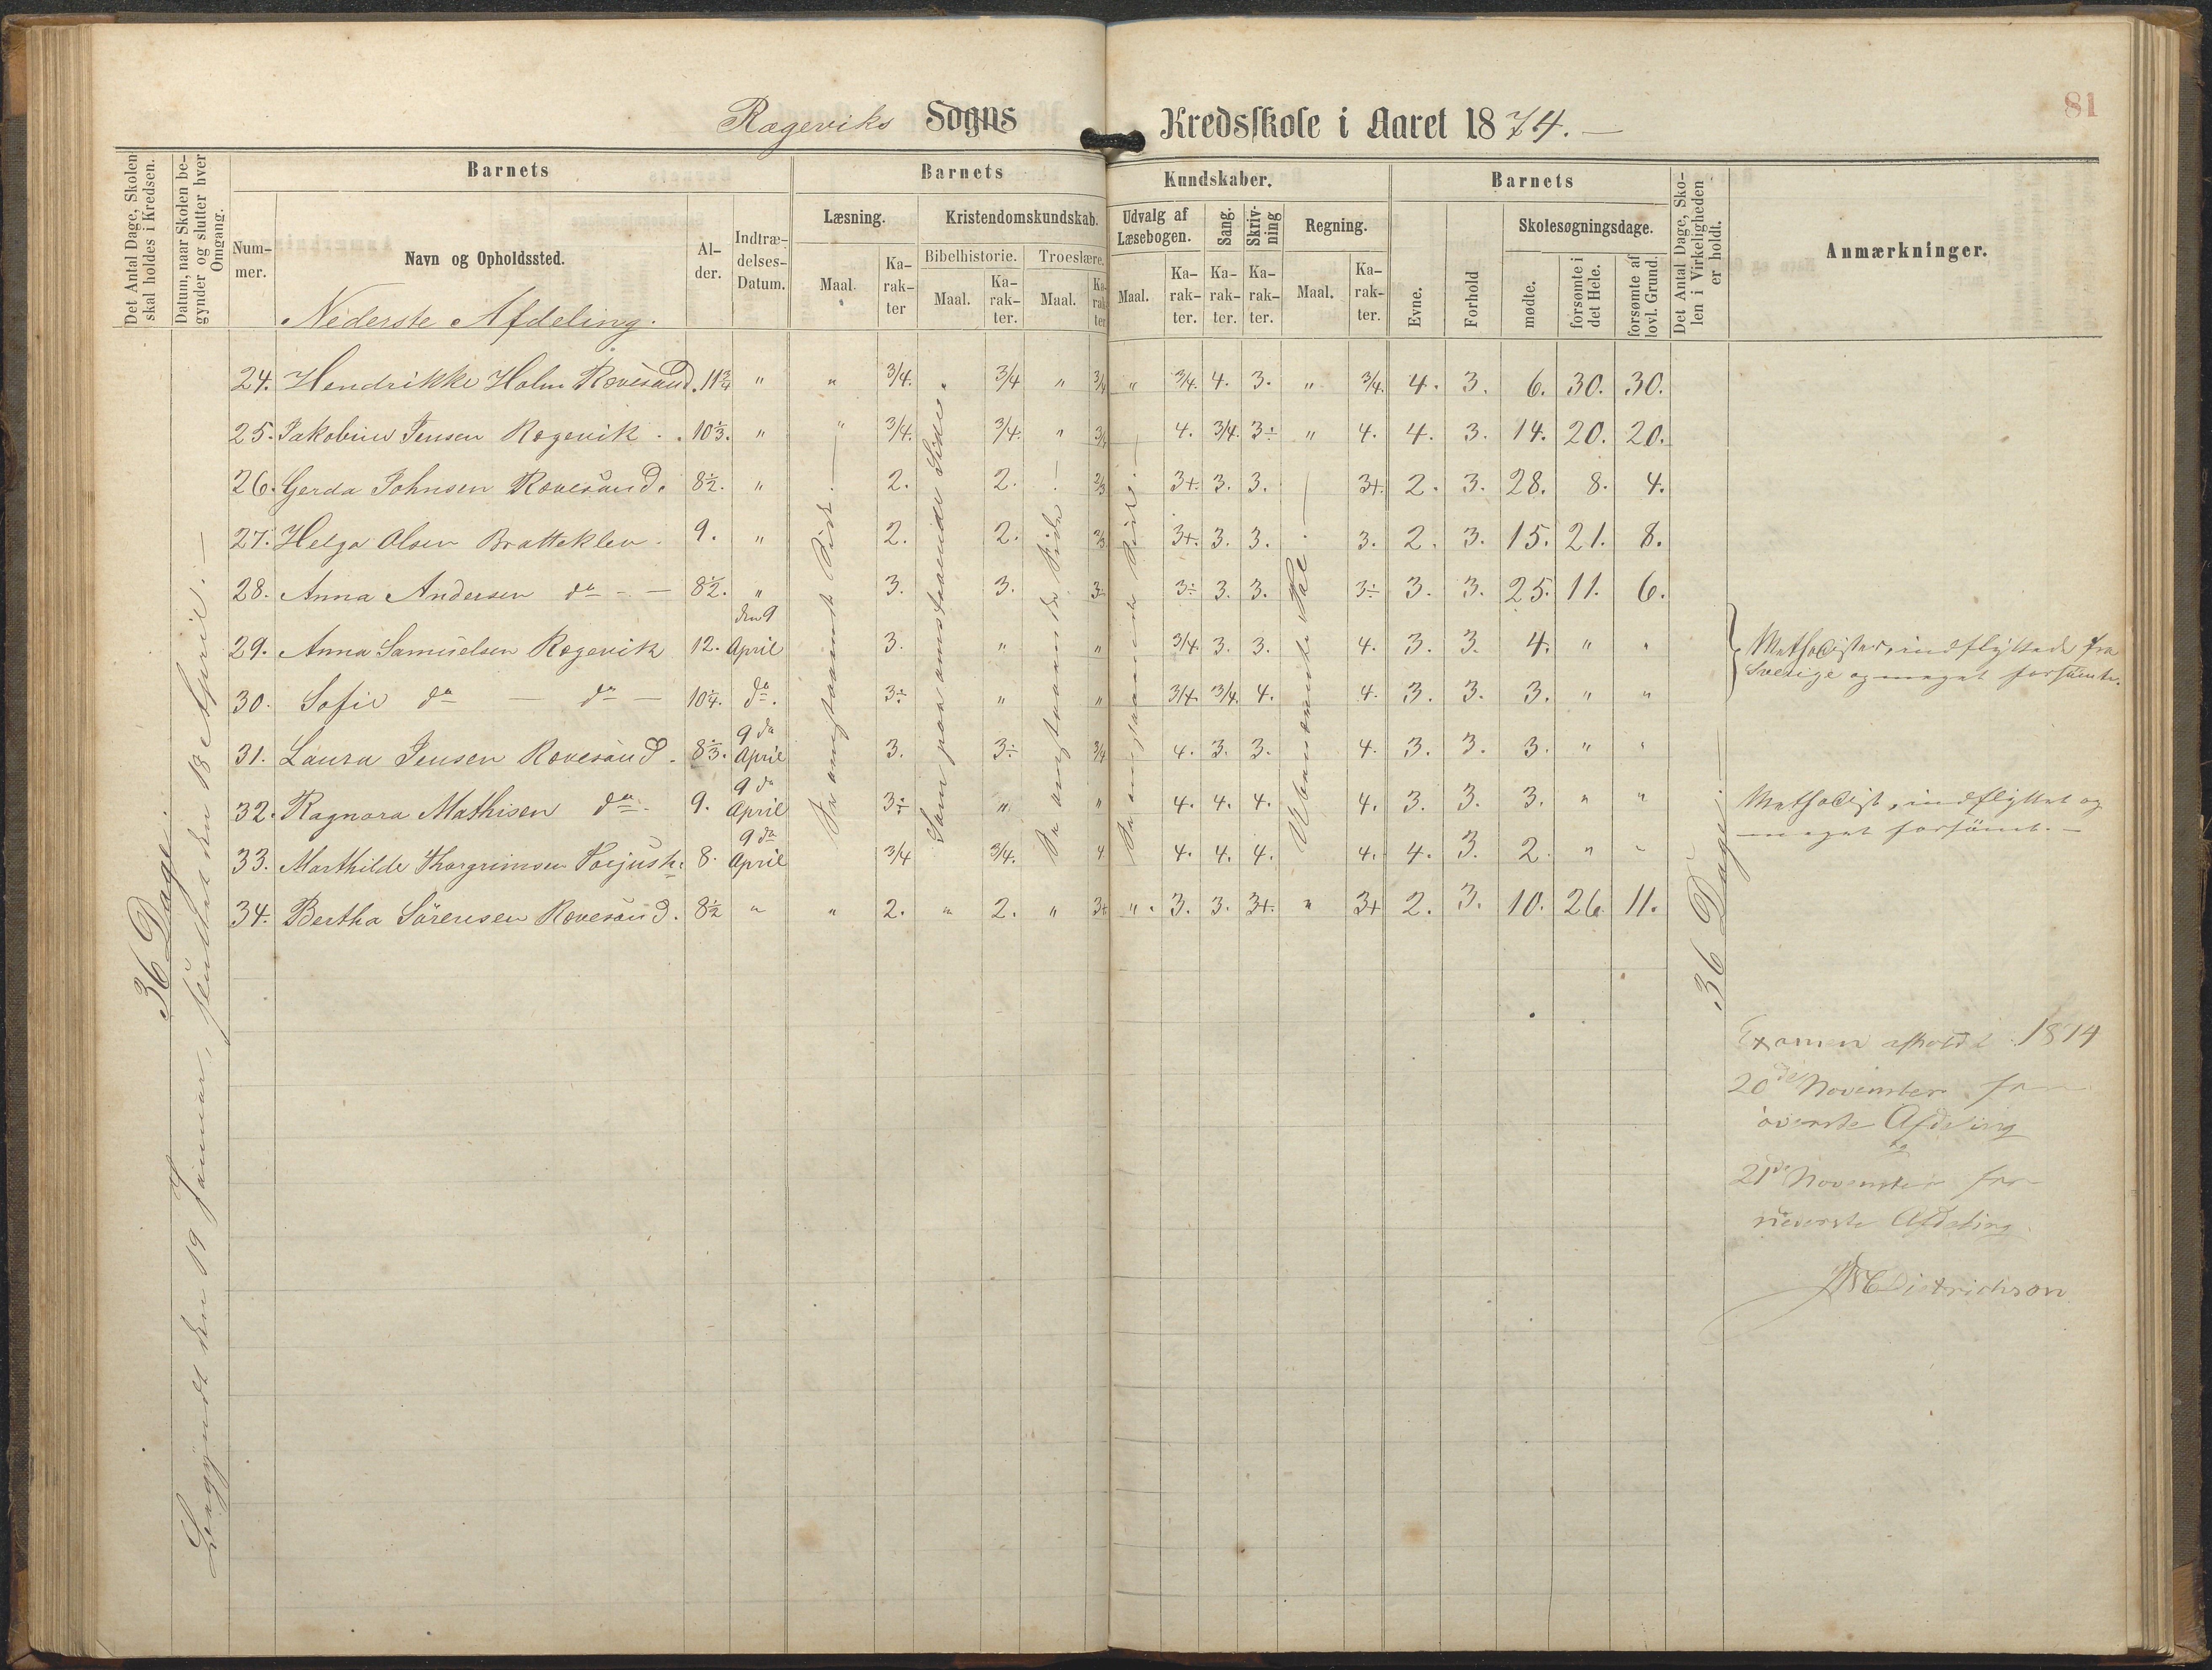 81
Rægeviks Sogns Kredsskole i Aaret 1874. —
Det Antal Dage, Skolen skal holdes i Kredsen.
Datum, naar Skolen begynder og slutter hver Omgang.
Barnets
Nummer.
Navn og Opholdssted.
Alder.
Indtrædelses-Datum.
Barnets Kundskaber.
Læsning.
Maal.
Karakter
Kristendomskundskab.
Bibelhistorie.
Maal.
Karakter.
Troeslære.
Maal.
Karakter
Udvalg af Læsebogen.
Maal.
Karakter.
Sang.
Karakter.
Skrivning
Karakter.
Regning.
Maal.
Karakter.
Barnets
Evne.
Forhold
Skolesøgningsdage.
mødte.
forsømte i det Hele.
forsømte af lovl. Grund.
Det Antal Dage, Skolen i Virkeligheden er holdt.
Anmærkninger.
Nederste Afdeling.
24. Hendrikke Holm Rævesand. 11 3/4 " " 3/4. " 3/4 " 3/4 " 3/4. 4. 3. " 3/4. 4. 3. 6. 30. 30.
25. Jakobine Jensen Rægevik . . 10 1/3. " " 3/4. 3/4. " 3/4 4. 3/4. 3÷ " 4. 4. 3. 14. 20. 20.
26. Gerda Johnsen Rævesand. 8 1/2. " 2. 2. 2/3 3+. 3. 3. 3+. 2. 3. 28. 8. 4.
27. Helga Olsen Bratteklev. 9. " 2. 2. 2/3 3+. 3. 3. 3. 2. 3. 15. 21. 8.
28. Anna Andersen do — 8 1/2. " 3. 3. 3÷ 3÷ 3. 3. 3÷ 3. 3. 25. 11. 6.
29. Anna Samuelsen Rægevik 12. den 9 April 3. " " 3/4 3. 3. 4. 3. 3. 4. " "
30. Sofie do — do — 10 1/4. do. 3÷ " " 3/4. 3/4. 4. 4. 3. 3. 3. " "
31. Laura Jensen Rævesand. 8 2/3. 9de April 3. 3÷ 3/4 4. 3. 3. 4. 3. 3. 3. " "
32. Ragnara Mathisen do 9. 9de April 3÷ " " 4. 4. 4. 4. 3. 3. 3. " "
33. Marthilde Thorgrimsen 8. 9de April 3/4 3/4. 4 4. 4. 4. 4. 4. 3. 2. " "
34. Bertha Sørensen Rævesand. 8 1/2 " " 2. " 2. " 3+ " 3. 3. 3+. " 3+ 2. 3. 10. 26. 11.
36 Dage.
den 19 Januar, sluttet den 18 April. —
Som paa omstaaende Side.
Ubenævnte Tal. —
36 Dage. —
Methodister, indflyttede fra
Sverige og meget forsømte.
Methodist, indflyttet og
meget forsømt. —
Examen afholdt 1874
20de November for
øverste Afdeling
21de November for
nederste Afdeling
Dietrichson